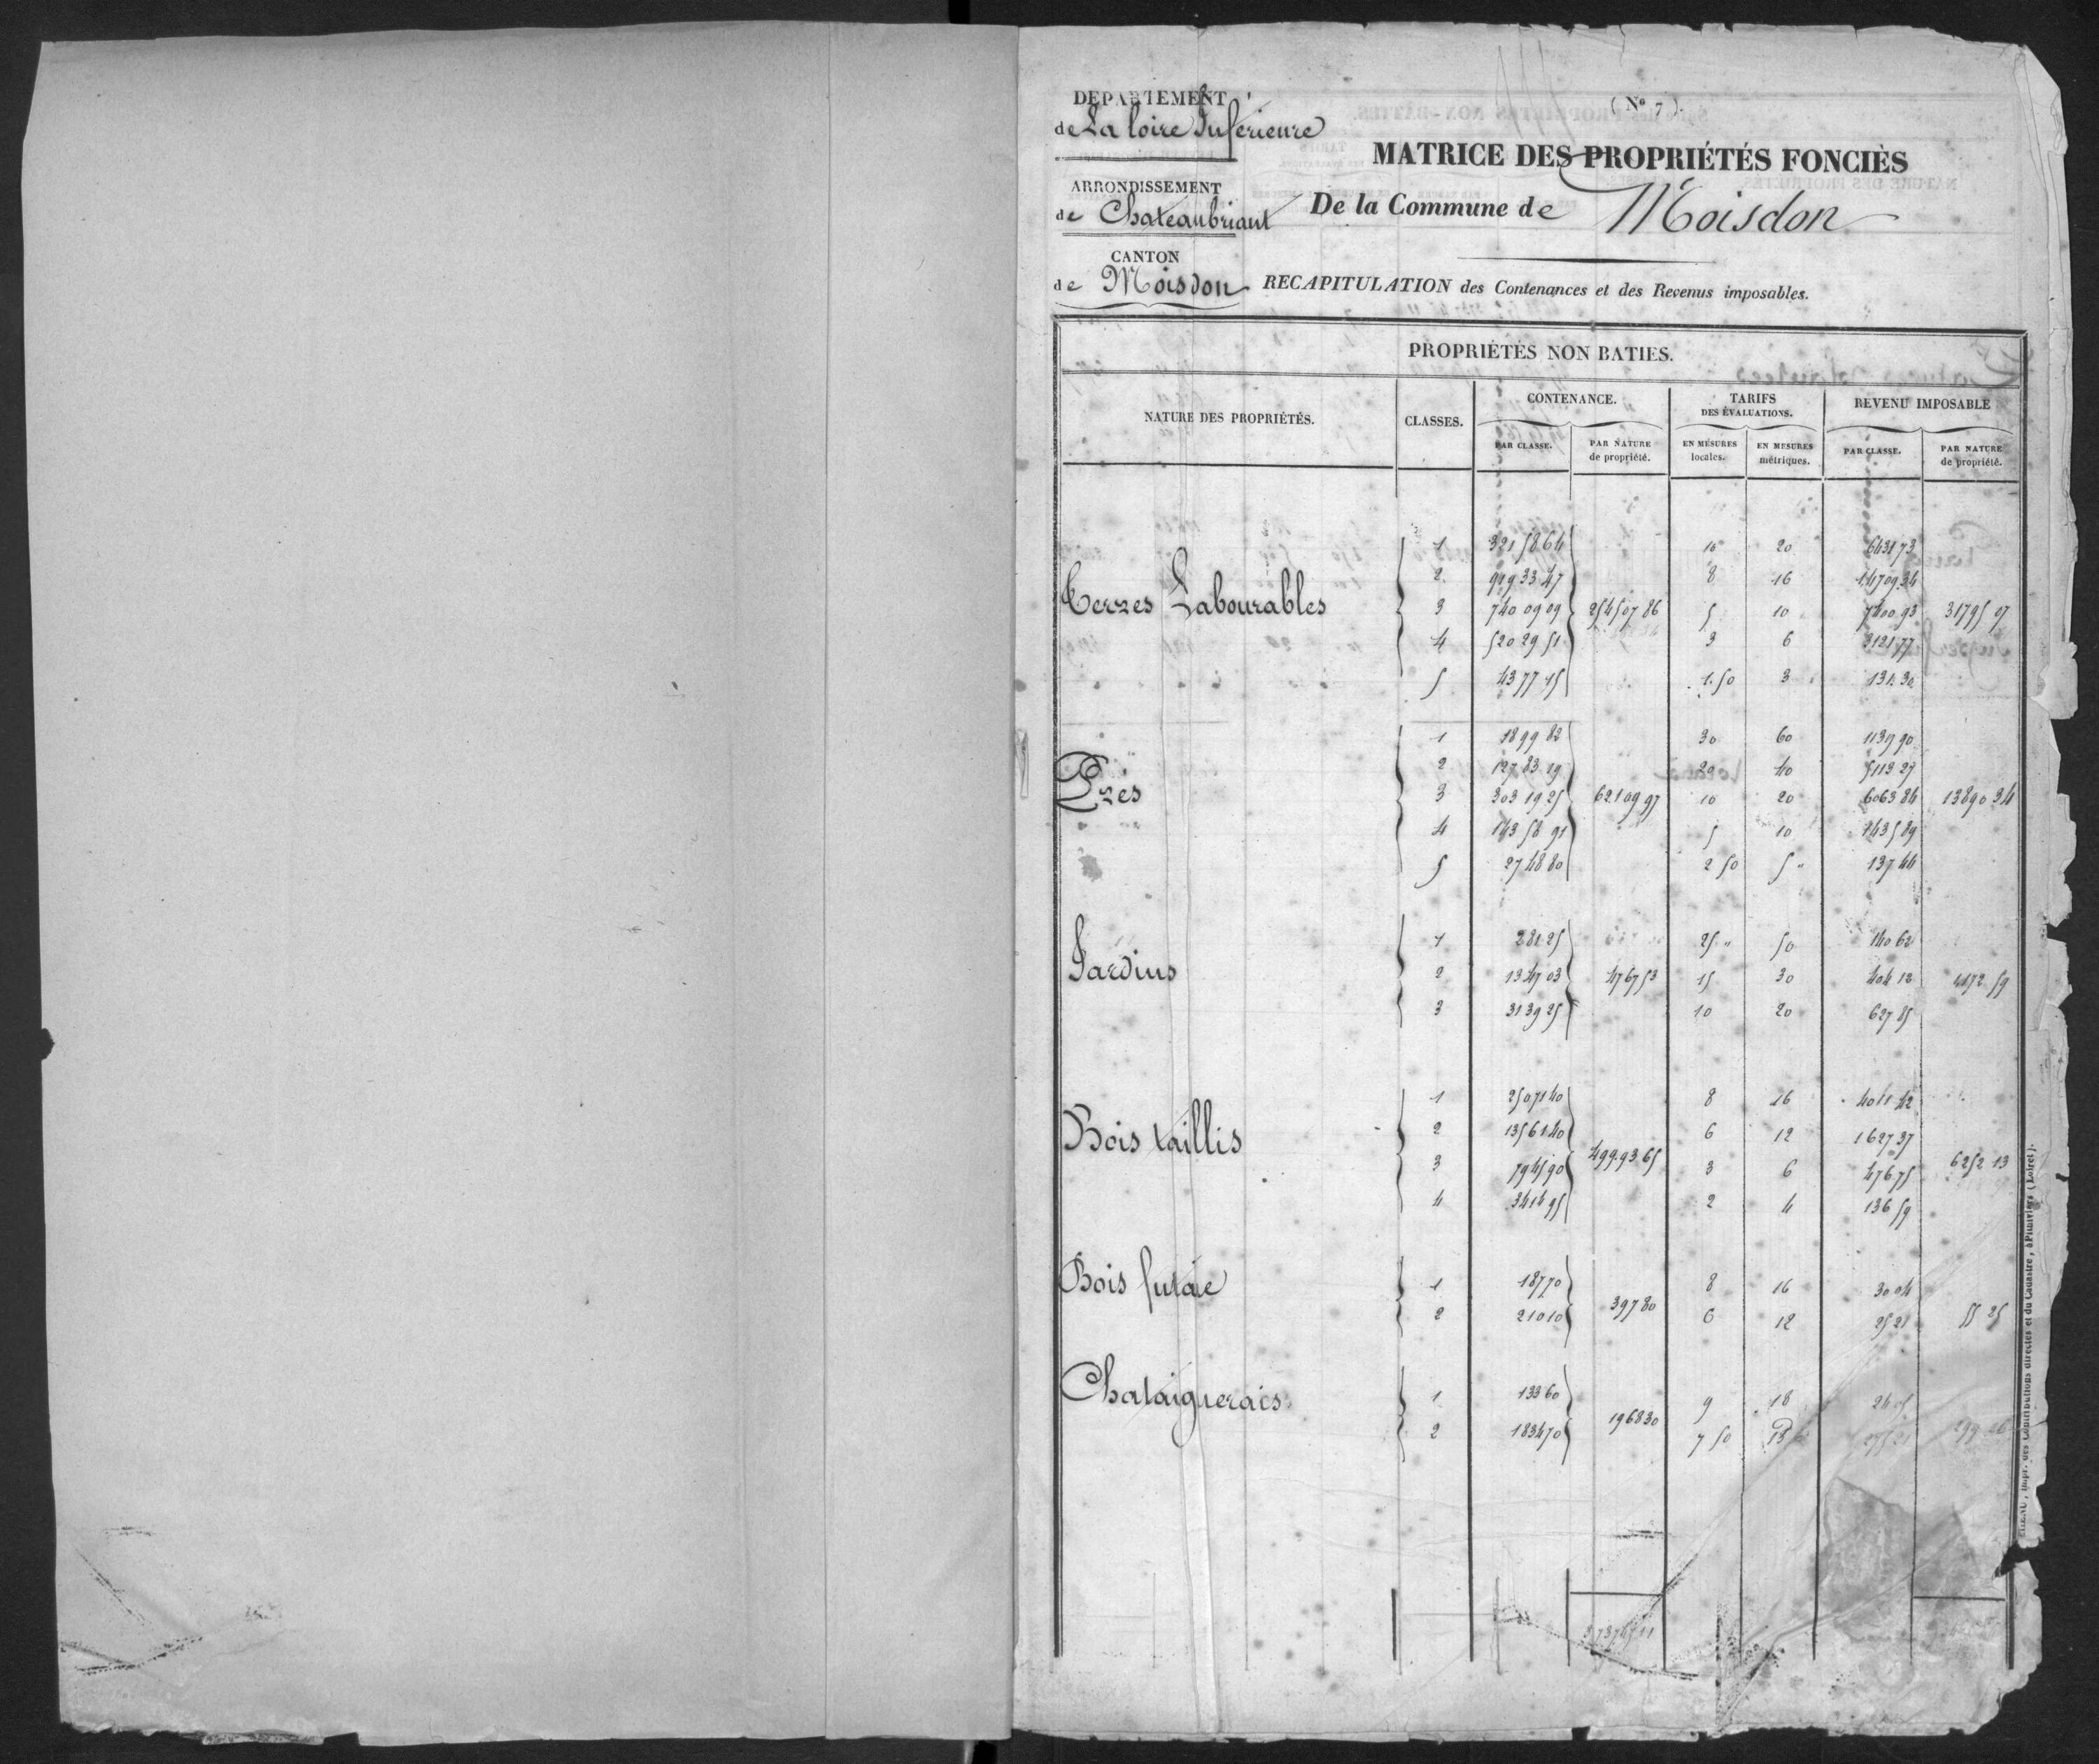 DEPARTEMENT
de La Loire Inférieure
ARRONDISSEMENT
de Chateaubriant
CANTON
de Moisdon
( Nº 7 ).
MATRICE DES PROPRIÉTÉS FONCIÈS
De la Commune de Moisdon
RECAPITULATION des Contenances et des Revenus imposables.
PROPRIÉTÉS NON BATIES.
NATURE DES PROPRIÉTÉS.
CLASSES.
CONTENANCE.
TARIFS
DES ÉVALUATIONS.
REVENU IMPOSABLE
PAR CLASSE.
PAR NATURE
de propriété.
EN MESURES
locales.
EN MESURES
métriques.
PAR CLASSE.
PAR NATURE
de propriété.
1 321 58 64 10 20 6431 73
2 919 33 47 8 16 14709 34
Terres Labourables 3 740 09 09 2545 07 86 5 10 7400 93 31795 07
4 520 29 51 3 6 3121 77
5 43 77 15 1.50 3 131 30
1 18 99 82 30 60 1139 90
2 127 83 19 20 40 5113 27
Prés 3 303 19 25 621 09 97 10 20 6063 84 13890 34
4 143 58 91 5 10 1435 89
5 27 48 80 2 50 5 " 137 44
1 2 81 25 25 " 50 140 62
Jardins 2 13 47 03 47 67 53 15 30 404 12 1172 59
3 31 39 25 10 20 627 85
1 250 71 40 8 16 4011 42
Bois taillis 2 135 61 40 6 12 1627 37
3 79 45 90 499 93 65 3 6 476 75 6252 13
4 34 14 95 2 4 136 59
Bois futaie 1 1 87 70 8 16 30 04
2 2 10 10 3 97 80 6 12 25 21 55 25
Chataignerais 1 1 33 60 9 18 24 05
2 18 34 70 19 68 30 7 50 15
des Contributions directes et du Cadastre, à Pithiviers (Loiret).